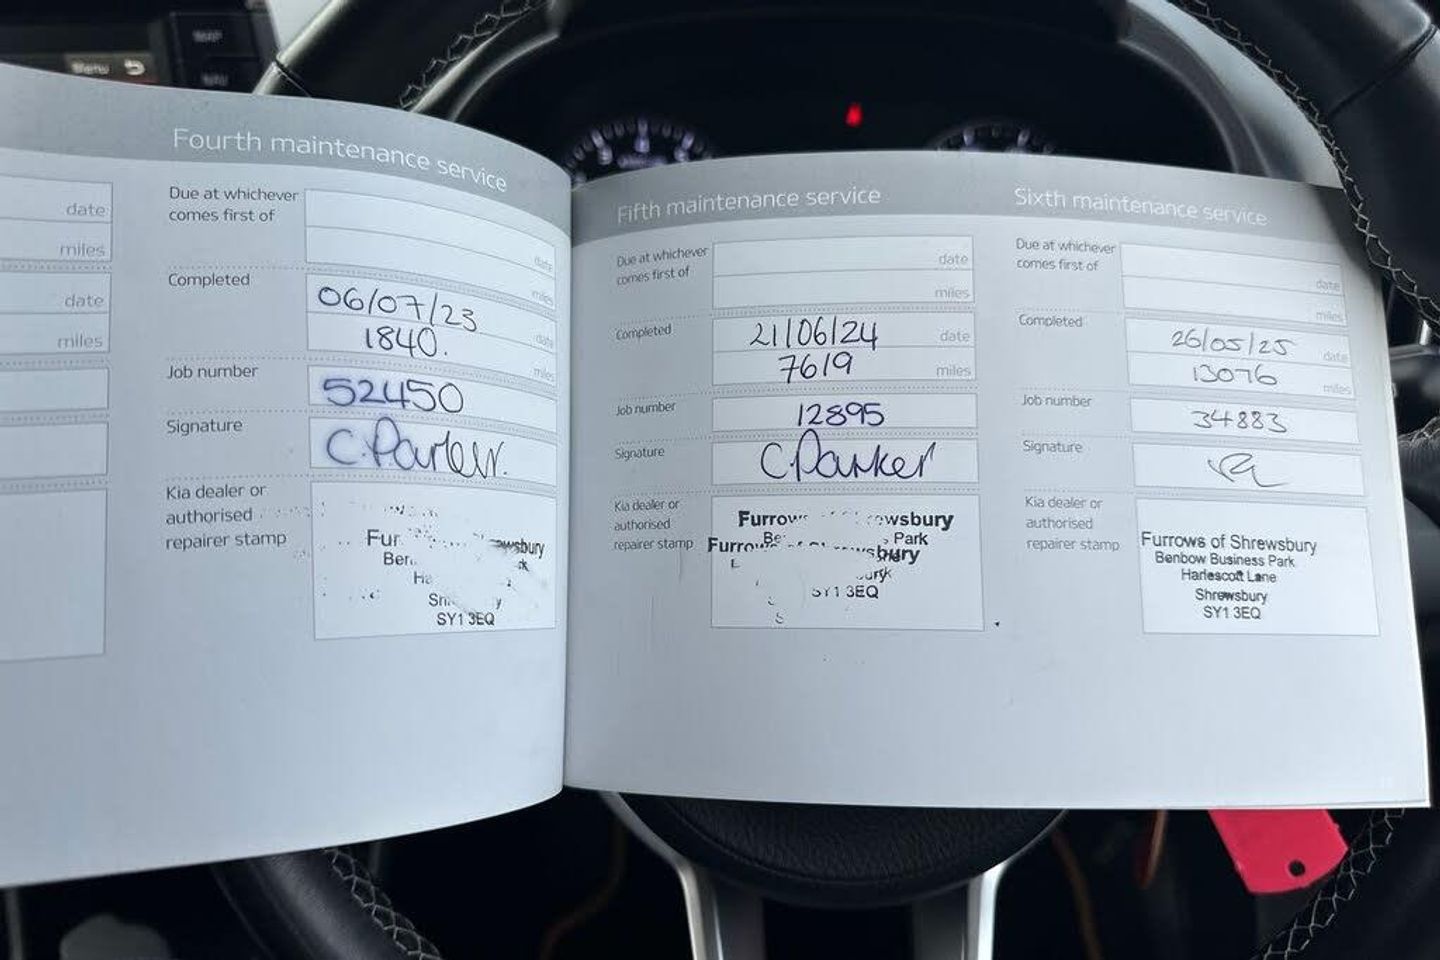 Menu
MAP
Fourth maintenance service
date
miles
date
miles
Due at whichever
comes first of
date
miles
Completed
06/07/23
date
1840.
miles
Job number
52450
Signature
C.Parker.
Kia dealer or
authorised
repairer stamp
SY1 3EQ
Fifth maintenance service
Due at whichever
comes first of
date
miles
Completed
21/06/24
date
7619
miles
Job number
12895
Signature
C.Parker
Kia dealer or
authorised
repairer stamp
Park
SY1 3EQ
Sixth maintenance service
Due at whichever
comes first of
date
miles
Completed
26/05/25
date
13076
miles
Job number
34883
Signature
Kia dealer or
authorised
repairer stamp
Furrows of Shrewsbury
Benbow Business Park
Harlescott Lane
Shrewsbury
SY1 3EQ